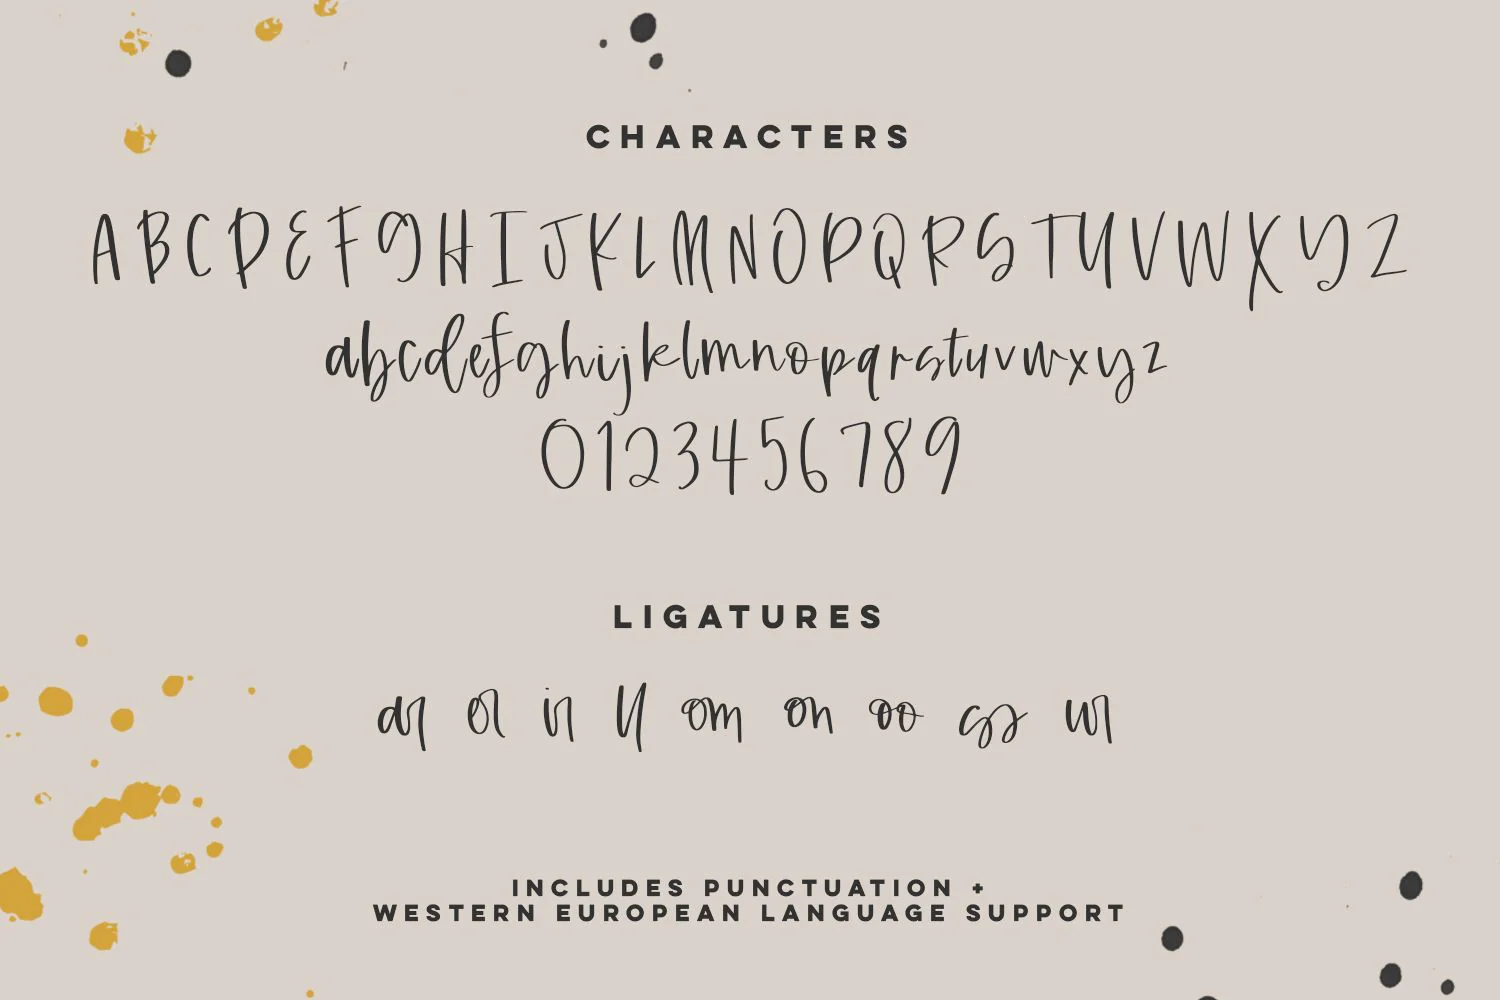 CHARACTERS
ABCDEFGHIJKLMNOPQRSTUVWXYZ
abcdefghijklmnopqrstuvwxyz
0123456789
LIGATURES
ar or ir ll om on oo ss ur
INCLUDES PUNCTUATION +
WESTERN EUROPEAN LANGUAGE SUPPORT